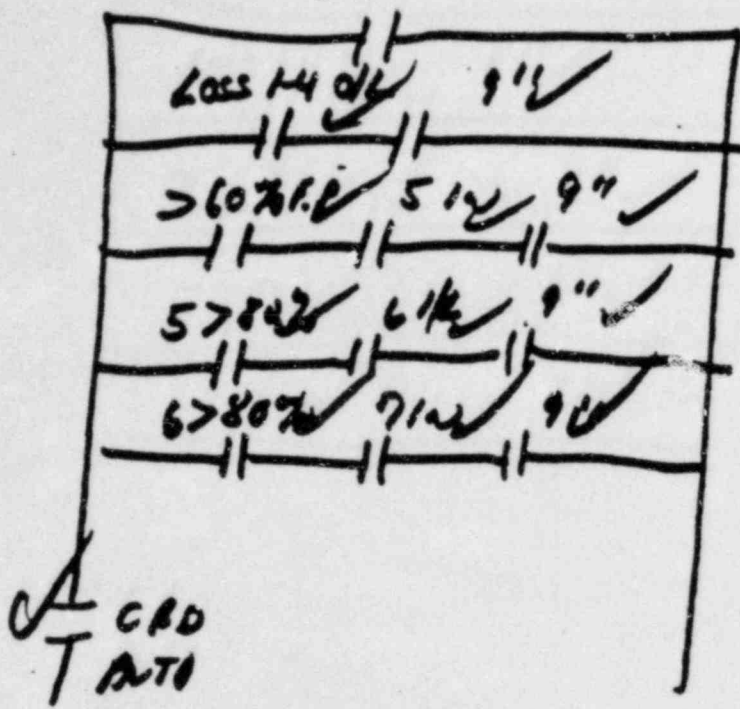 LOSS 1-4 O/L 9"
>60% R.P 5 IN 9"
5>80% 6 IN 9"
6>80% 7 IN 9"
CRD
AUTO